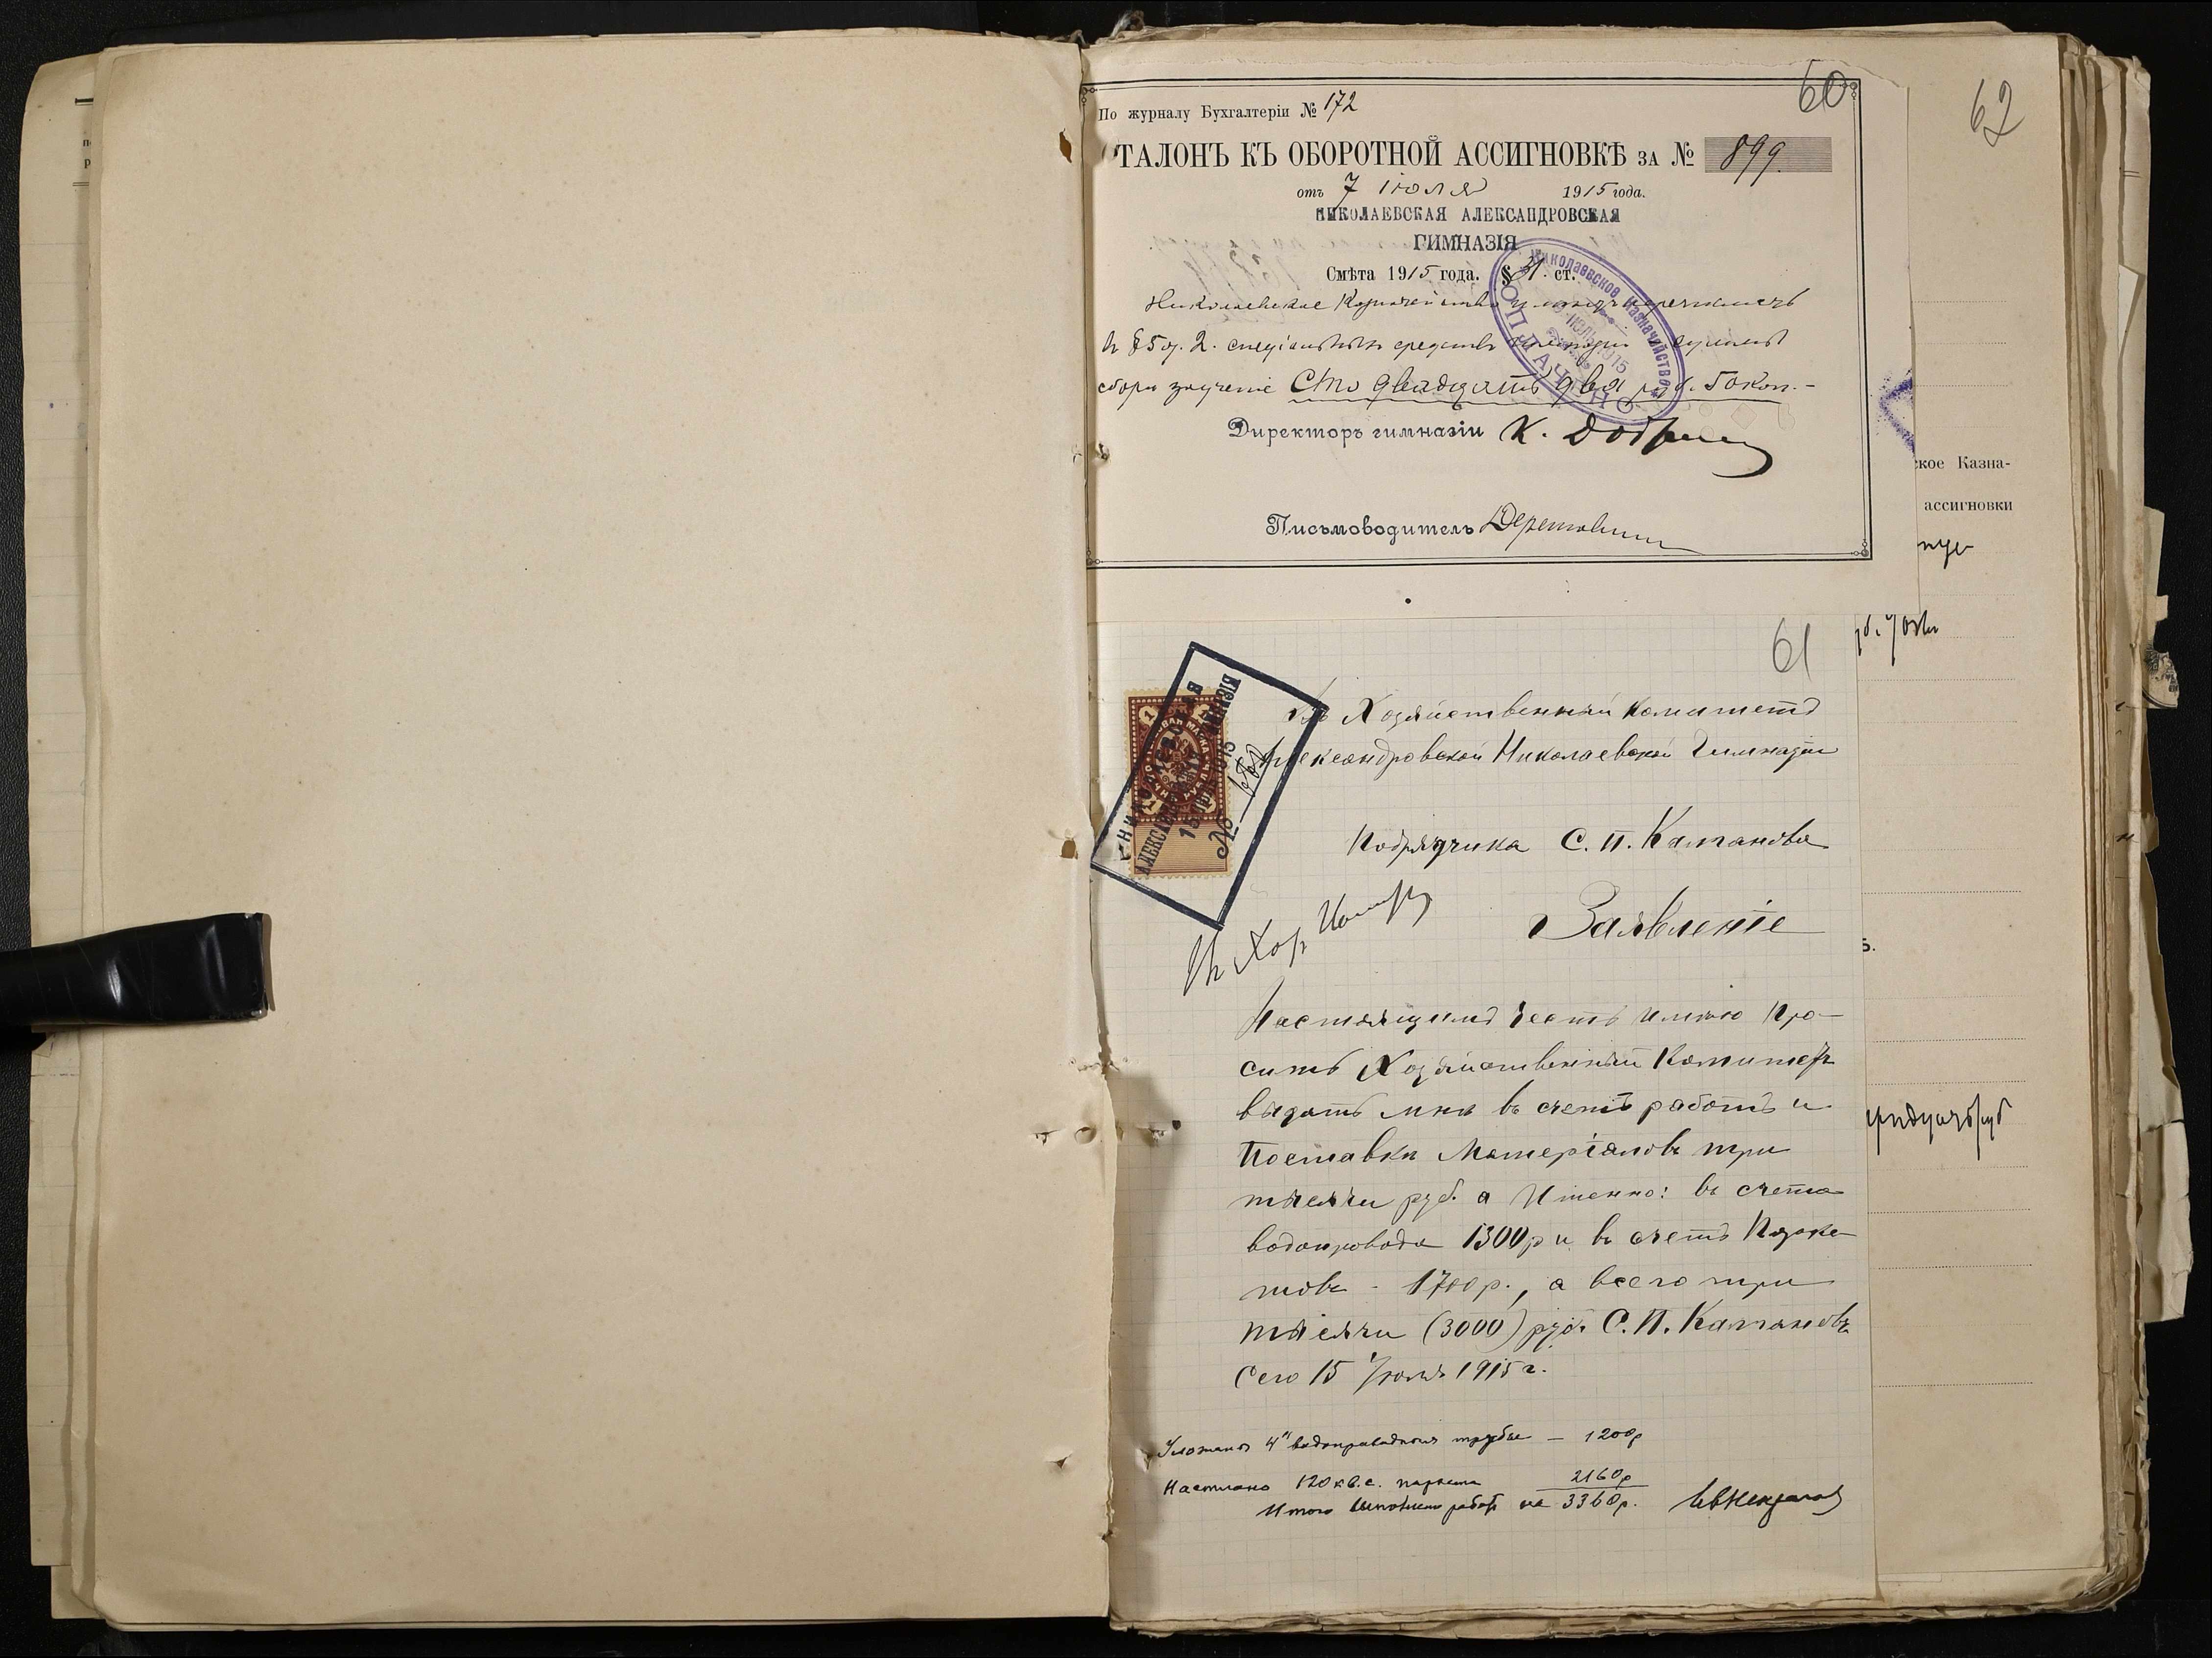 60
По журналу Бухгалтеріи № 172
ТАЛОНЪ КЪ ОБОРОТНОЙ АССИГНОВКѢ ЗА № 899.
отъ 7 іюля 1915 года.
НИКОЛАЕВСКАЯ АЛЕКСАНДРОВСКАЯ
ГИМНАЗІЯ
Смѣта 1915 года. § 31. ст.
Николаевское Казначейство
Николаевское Казначейство
ІЮЛ 1915
ОПЛАЧЕНО
въ § 5 ст. 2. спеціальныхъ средствъ
сбора за ученіе Сто двадцать два руб. 50 коп. -
Директоръ гимназіи К.
Письмоводитель
62
ское Казна-
ассигновки
61
НИКОЛАЕВСКАЯ
АЛЕКСАНДРОВСКАЯ ГИМНАЗІЯ
15 1915
№
Въ Хозяйственный Комитетъ
Александровской Николаевской Гимназіи
Подрядчика С. П. Катанова
Заявленіе
Въ Хоз.
Настоящимъ честь имѣю про-
сить Хозяйственный Комитетъ
выдать мнѣ въ счетъ работъ и
поставки Матеріаловъ три
тысячи руб. а Именно: въ счета
водопровода 1300 р и въ счетъ Парке-
товъ - 1700 р., а всего три
тысячи (3000) руб. С. П. Катановъ
Сего 15 Іюля 1915 г.
Уложено 4" водопроводныя трубы — 1200 р
Настлано 120 кв. с. паркета 2160 р
Итого выполнено работъ на 3360 р.